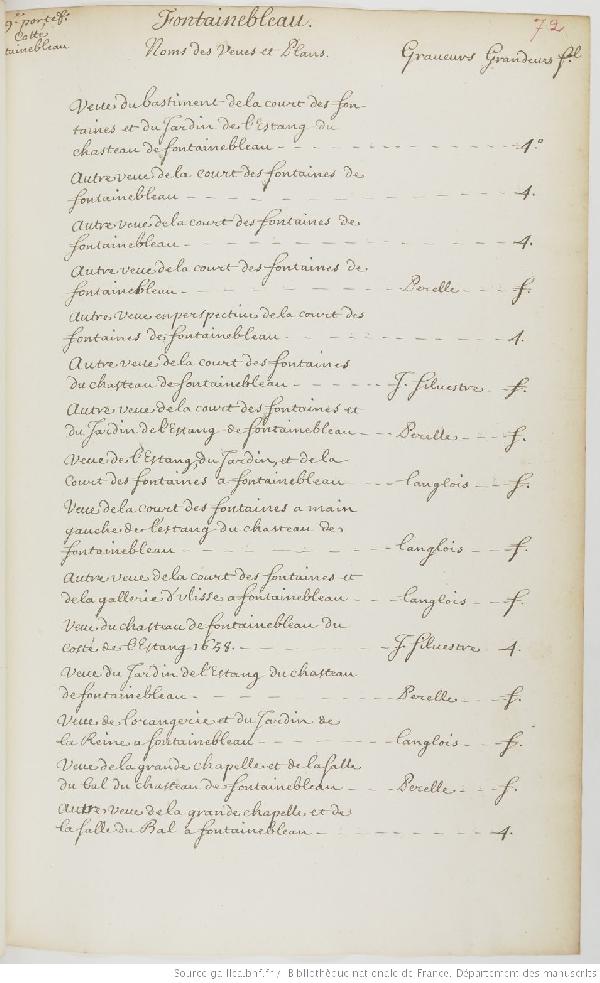 9.e portef.
Cotté
tainebleau
Fontainebleau.
72
Noms des Veues et Plans. Graueurs Grandeurs f.l
Veue du bastiment de la court des fon-
taines et du Jardin de l'Estang du
chasteau de fontainebleau - - - 4.o
Autre veue de la court des fontaines de
fontainebleau - - - 4.
Autre veue de la court des fontaines de
fontainebleau - - - 4.
Autre veue de la court des fontaines de
fontainebleau - - - Perelle - - - f.
Autre Veue en perspectiue de la court des
fontaines de fontainebleau - - - 4.
Autre veue de la court des fontaines
du chasteau de fontainebleau - - - J. Siluestre - f.
Autre veue de la court des fontaines et
du Jardin de l'Estang de fontainebleau - - - Perelle - - f.
Veue de l'Estang, du Jardin, et de la
Court des fontaines a fontainebleau - - - langlois - - f.
Veue de la court des fontaines a main
gauche de l'estang du chasteau de
fontainebleau - - - langlois - - f.
Autre veue de la court des fontaines et
de la gallerie d'vlisse a fontainebleau - - - langlois - - f.
Veue du chasteau de fontainebleau du
costé de l'Estang 1658. - - - J. Siluestre - 4.
Veue du Jardin de l'Estang du chasteau
de fontainebleau - - - Perelle - - f.
Veue de l'orangerie et du Jardin de
la Reine a fontainebleau - - - langlois - - f.
Veue de la grande chapelle et de la salle
du bal du chasteau de fontainebleau - - - Perelle - - f.
Autre veue de la grande chapelle et de
la salle du Bal a fontainebleau - - - 4.
Source gallica.bnf.fr / Bibliothèque nationale de France. Département des manuscrits